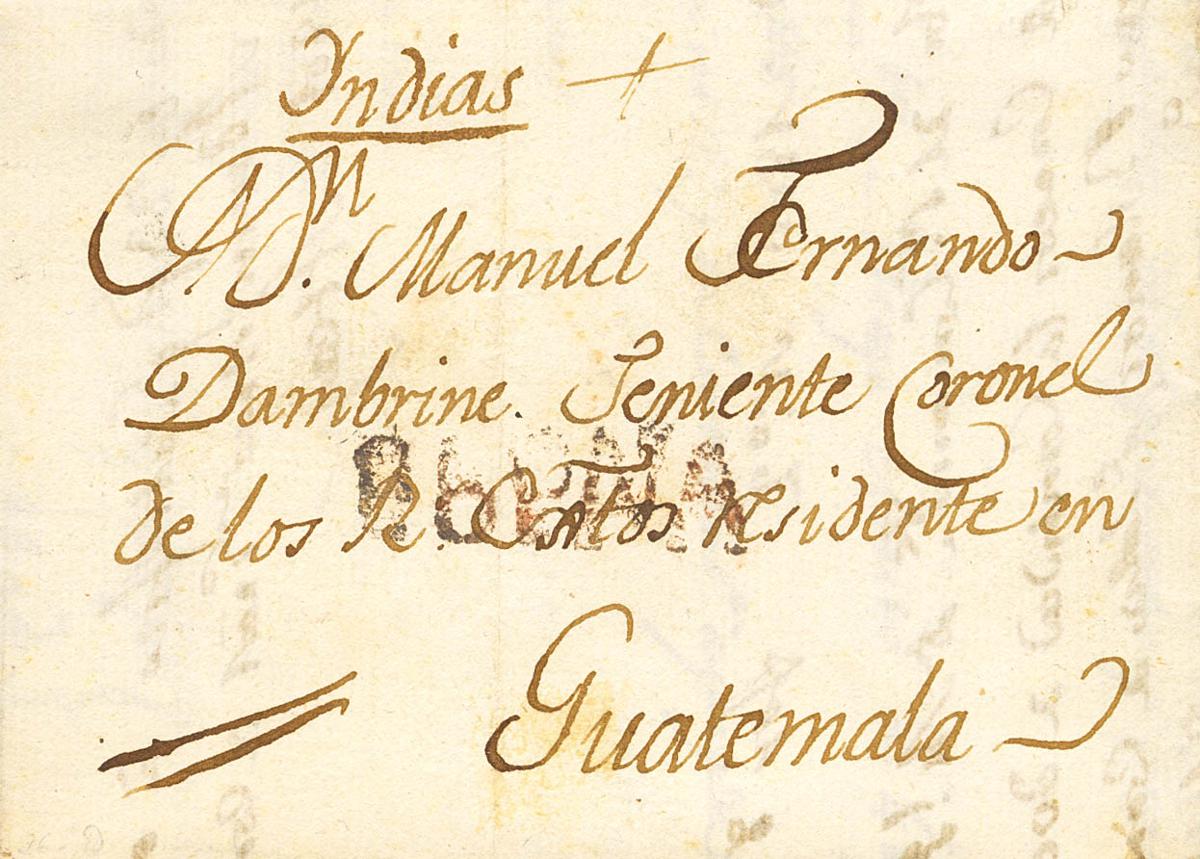 Yndias
A Dn. Manuel Fernando
Dambrine. Teniente Coronel
de los R. Extos residente en
Guatemala